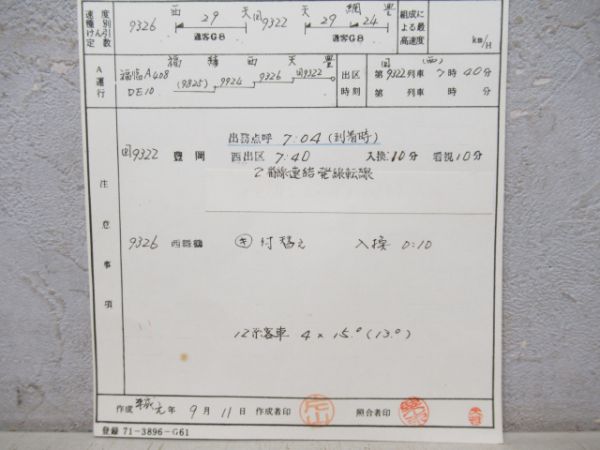 速度種別 けん引定数 9326 西 29 天 回9322 天 29 網 24 豊 組成による最高速度
遠客G8 遠客G8 km/H
A運行 福 綾 西 天 豊 回 (西)
福臨A408 (9825) 9924 9326 回9322 出区時刻 第9322列車 7時40分
DE10 第 列車 時 分
注意事項
出務点呼 7:04 (到着時)
回9322 豊岡 西出区 7:40 入換:10分 看視10分
2番線連結 発線転線
9326 西舞鶴 キ 付替え 入換 0:10
12系客車 4×15.0 (13.0)
作成 平成元年 9月11日 作成者印 片山 照合者印
登録 71-3896-G61